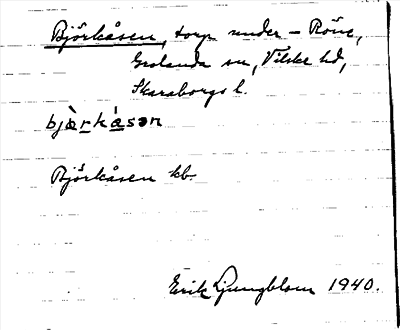 Björkåsen, torp under – Röne,
Grolanda sn, Vilske hd,
Skaraborgs l.
bjærkåsən
Björkåsen kb.
Erik Ljungblom 1940.